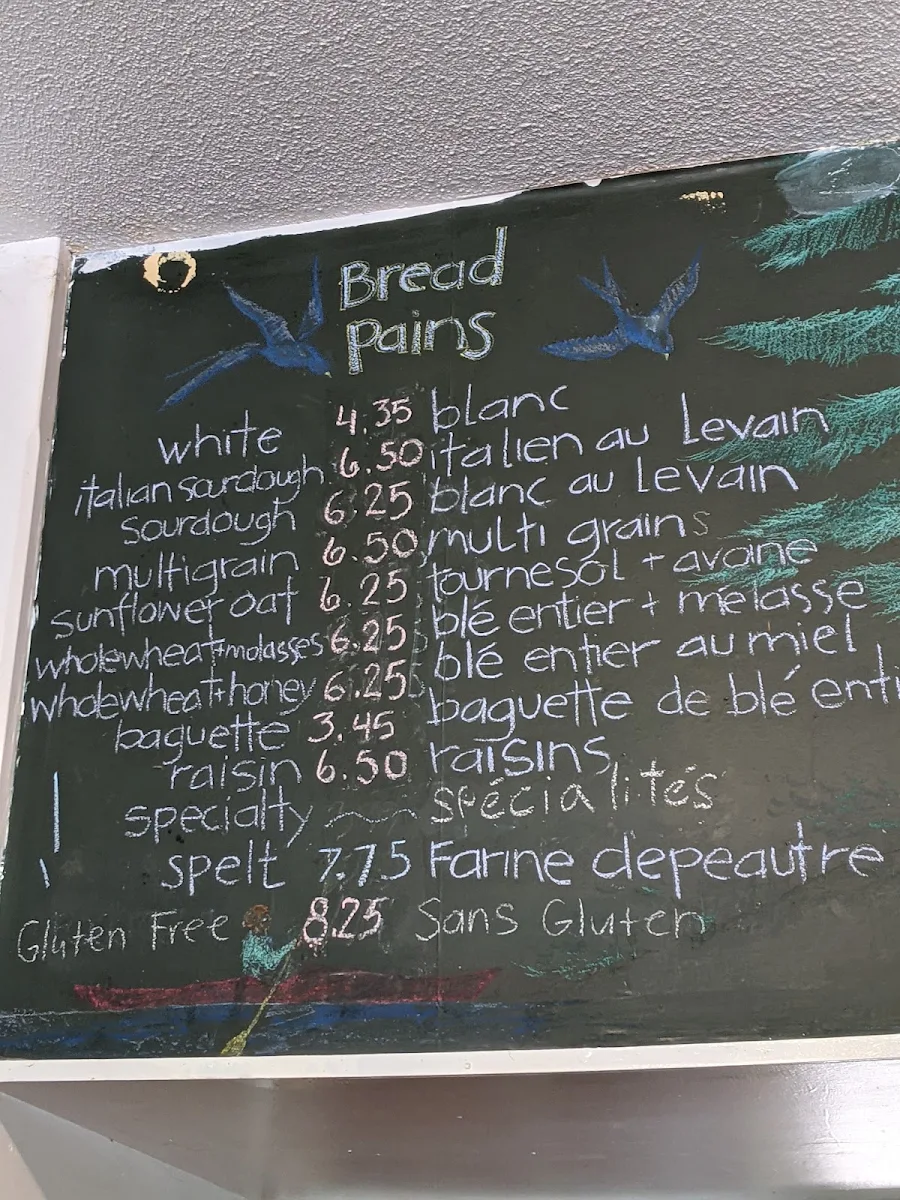 Bread
pains
white 4.35 blanc
italian sourdough 6.50 italien au Levain
sourdough 6.25 blanc au Levain
multigrain 6.50 multi grains
sunflower oat 6.25 tournesol + avoine
wholewheat+molasses 6.25 blé entier + mélasse
wholewheat+honey 6.25 blé entier au miel
baguette 3.45 baguette de blé enti
raisin 6.50 raisins
specialty spécialités
spelt 7.75 Farine depeautre
Gluten Free 8.25 Sans Gluten